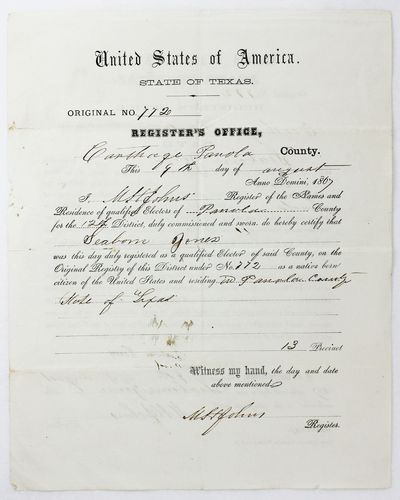 United States of America.
STATE OF TEXAS.
ORIGINAL NO. 772
REGISTER'S OFFICE,
Carthage Panola County.
This 9th day of august
Anno Domini, 1867
I, M S Johns Register of the Names and
Residence of qualified Electors of Panola County
for the District, duly commissioned and sworn, do hereby certify that
Seaborn Jones
was this day duly registered as a qualified Elector of said County, on the
Original Registry of this District under No. 772 as a native born
citizen of the United States and residing in Panola County
State of Texas
13 Precinct
Witness my hand, the day and date
above mentioned
M S Johns
Register.